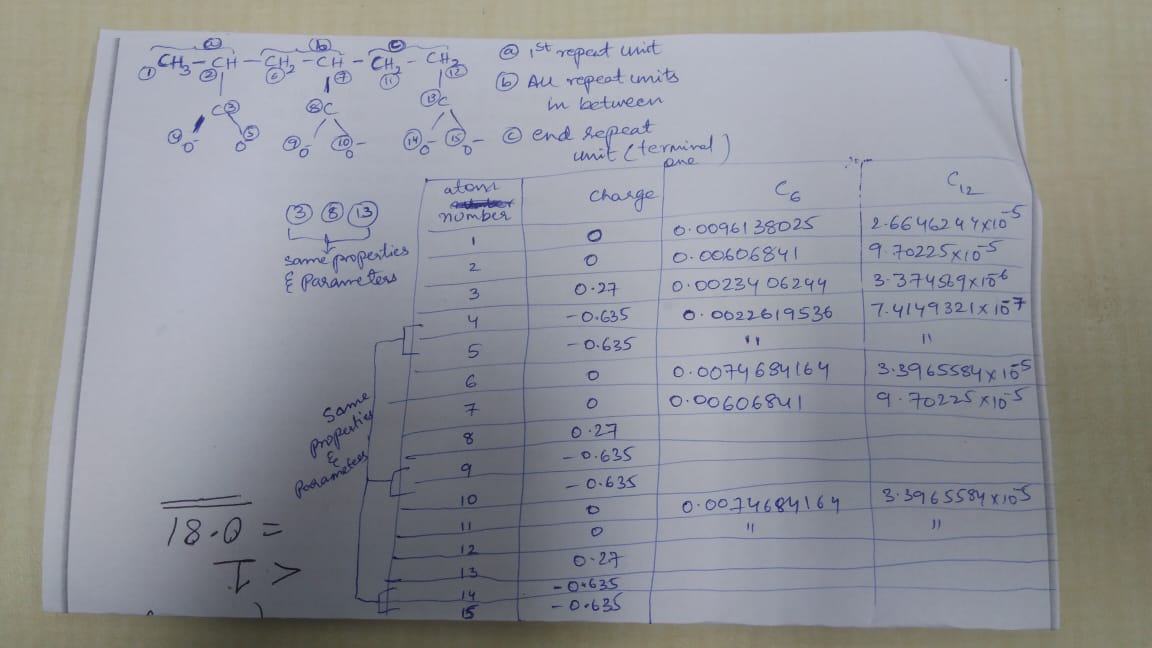 ⓐ ⓑ ⓒ
CH3 – CH – CH2 – CH – CH2 – CH2
① ② ⑥ ⑦ ⑪ ⑫
C ③ ⑧ C ⑬ C
④ O- ⑤ O- ⑨ O- ⑩ O- ⑭ O- ⑮ O-
ⓐ 1st repeat unit
ⓑ All repeat units
in between
ⓒ end repeat
unit (terminal one)
③ ⑧ ⑬
same properties
& Parameters
atom number charge C6 C12
1 0 0.0096138025 2.6646244×10-5
2 0 0.00606841 9.70225×10-5
3 0.27 0.0023406244 3.374569×10-6
4 -0.635 0.0022619536 7.4149321×10-7
5 -0.635 " "
6 0 0.0074684164 3.3965584×10-5
7 0 0.00606841 9.70225×10-5
8 0.27
9 -0.635
10 -0.635
11 0 0.0074684164 3.3965584×10-5
12 0 " "
13 0.27
14 -0.635
15 -0.635
Same
properties
&
parameters
= 0.81